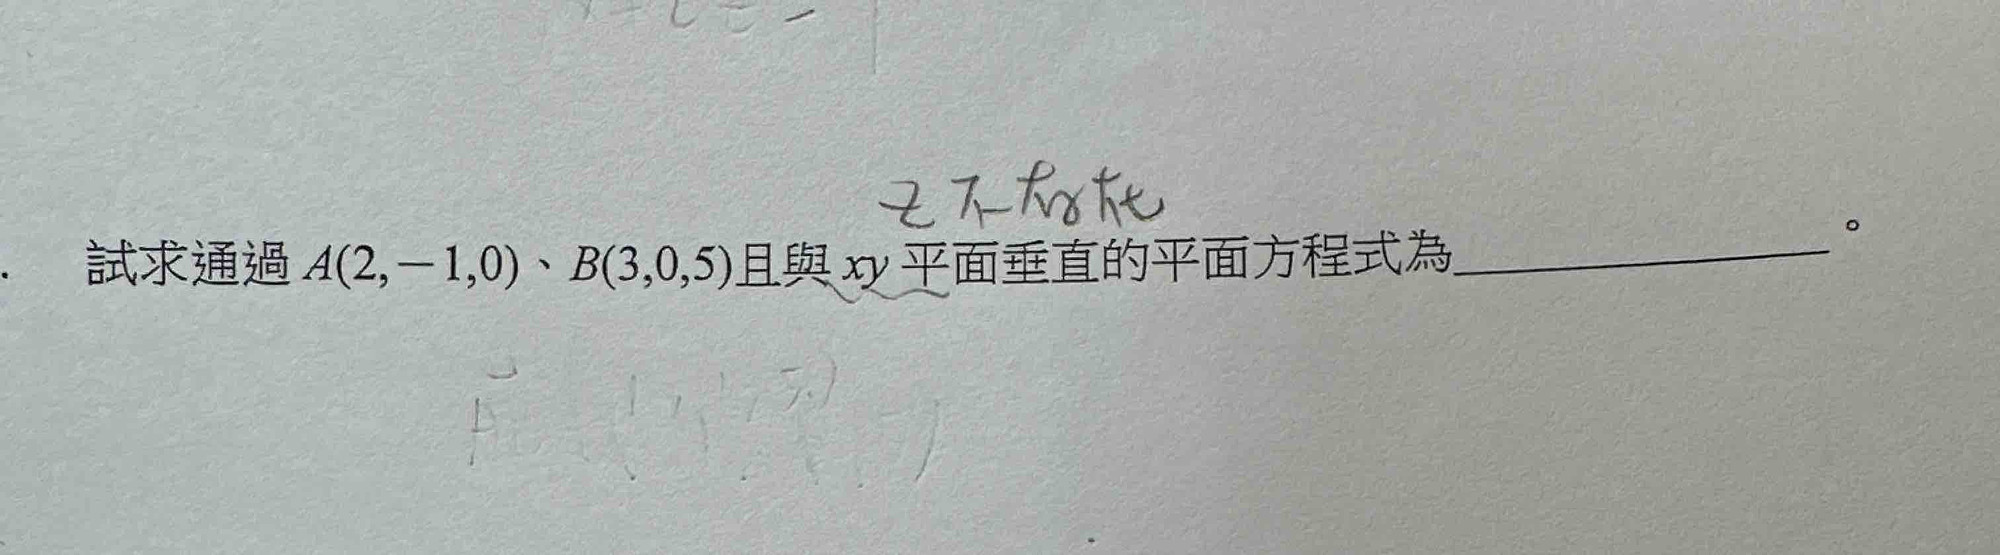 z不存在
試求通過 A(2,－1,0)、B(3,0,5)且與 xy 平面垂直的平面方程式為＿＿＿＿＿＿＿＿。